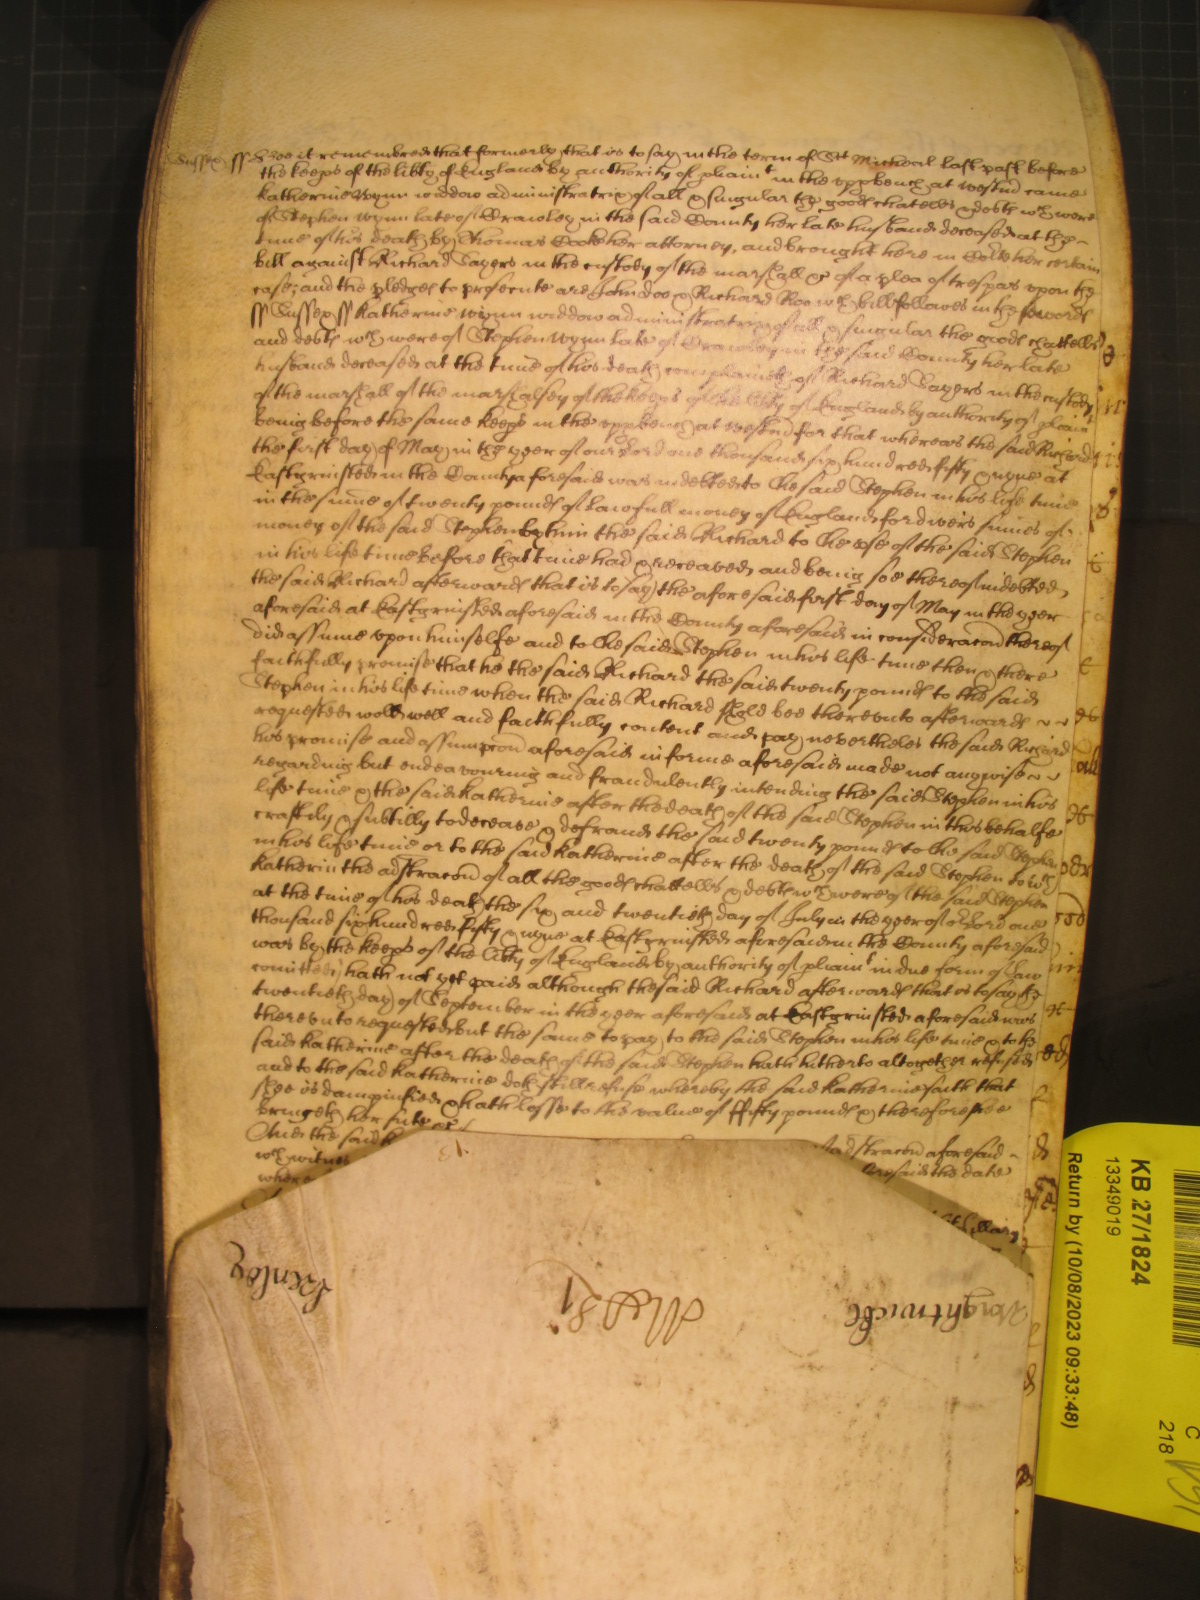 Sussex ss Bee it remembred that formerly that is to say in the term of St Michael last past before
the keeps of the libty of England by authority of pliamt in the uppbench at Westm came
Katherine Wynn widdow administratrix of all & singular the goods chattells & debts wch were
of Stephen Wynn late of Crawley in the said County her late husband deceased at the
tyme of his death by Thomas Cooke her attorney, and brought here in Co[ur]t her certain
bill against Richard Sayers in the custody of the marshall &c of a plea of trespas upon the
case; and the pledges to prosecute are John Doe & Richard Roe wch bill followes in these words
ss Sussex ss Katherine Wynn widdow administratrix of all & singular the goods chattells
and debts wch were of Stephen Wynn late of Crawley in the said County her late
husband deceased at the time of his death complaineth of Richard Sayers in the custody
of the marshall of the marshalsey of the keeps of the libty of England by authority of pliamt
being before the same keeps in the uppbench at Westm for that whereas the said Richard
the first day of May in the yeer of our Lord one thousand six hundred fifty & nyne at
Eastgrinsted in the County aforesaid was indebted to the said Stephen in his life time
in the sume of twenty pounds of lawfull money of England for divers sumes of
money of the said Stephen by him the said Richard to the use of the said Stephen
in his life time before that time had & receaved and being soe thereof indebted
the said Richard afterwards that is to say the aforesaid first day of May in the yeer
aforesaid at Eastgrinsted aforesaid in the County aforesaid in consideracon thereof
did assume upon himselfe and to the said Stephen in his life time then & there
faithfully promise that he the said Richard the said twenty pounds to the said
Stephen in his life time when the said Richard shold bee thereunto afterwards
requested wold well and faithfully content and pay nevertheles the said Richard
his promise and assumpcon aforesaid in forme aforesaid made not anywise
regarding but endeavouring and fraudulently intending the said Stephen in his
life time & the said Katherine after the death of the said Stephen in this behalfe
craftily & subtilly to deceave & defraude the said twenty pounds to the said Stephen
in his life time or to the said Katherine after the death of the said Stephen to wch
Katherin the adstracon of all the goods chattells & debts wch were of the said Stephen
at the time of his death the six and twentieth day of July in the yeer of or Lord one
thousand six hundred fifty & nyne at Eastgrinsted aforesaid in the County aforesaid
was by the keeps of the libty of England by authority of pliamt in due form of law
comitted hath not yet paid although the said Richard afterwards that is to say the
twentieth day of September in the yeer aforesaid at Eastgrinsted aforesaid was
thereunto requested but the same to pay to the said Stephen in his life time & to the
said Katherine after the death of the said Stephen hath hitherto altogether refused
and to the said Katherine doth still refuse whereby the said Katherine saith that
shee is dampnified & hath losse to the value of ffifty pounds & therefore shee
bringeth her suite &c
And the said K adstracon aforesaid
wch witnes aforesaid the date
where
Hillary
Henley
Wightwicke
KB 27/1824
13349019
Return by (10/08/2023 09:33:48)
C
218